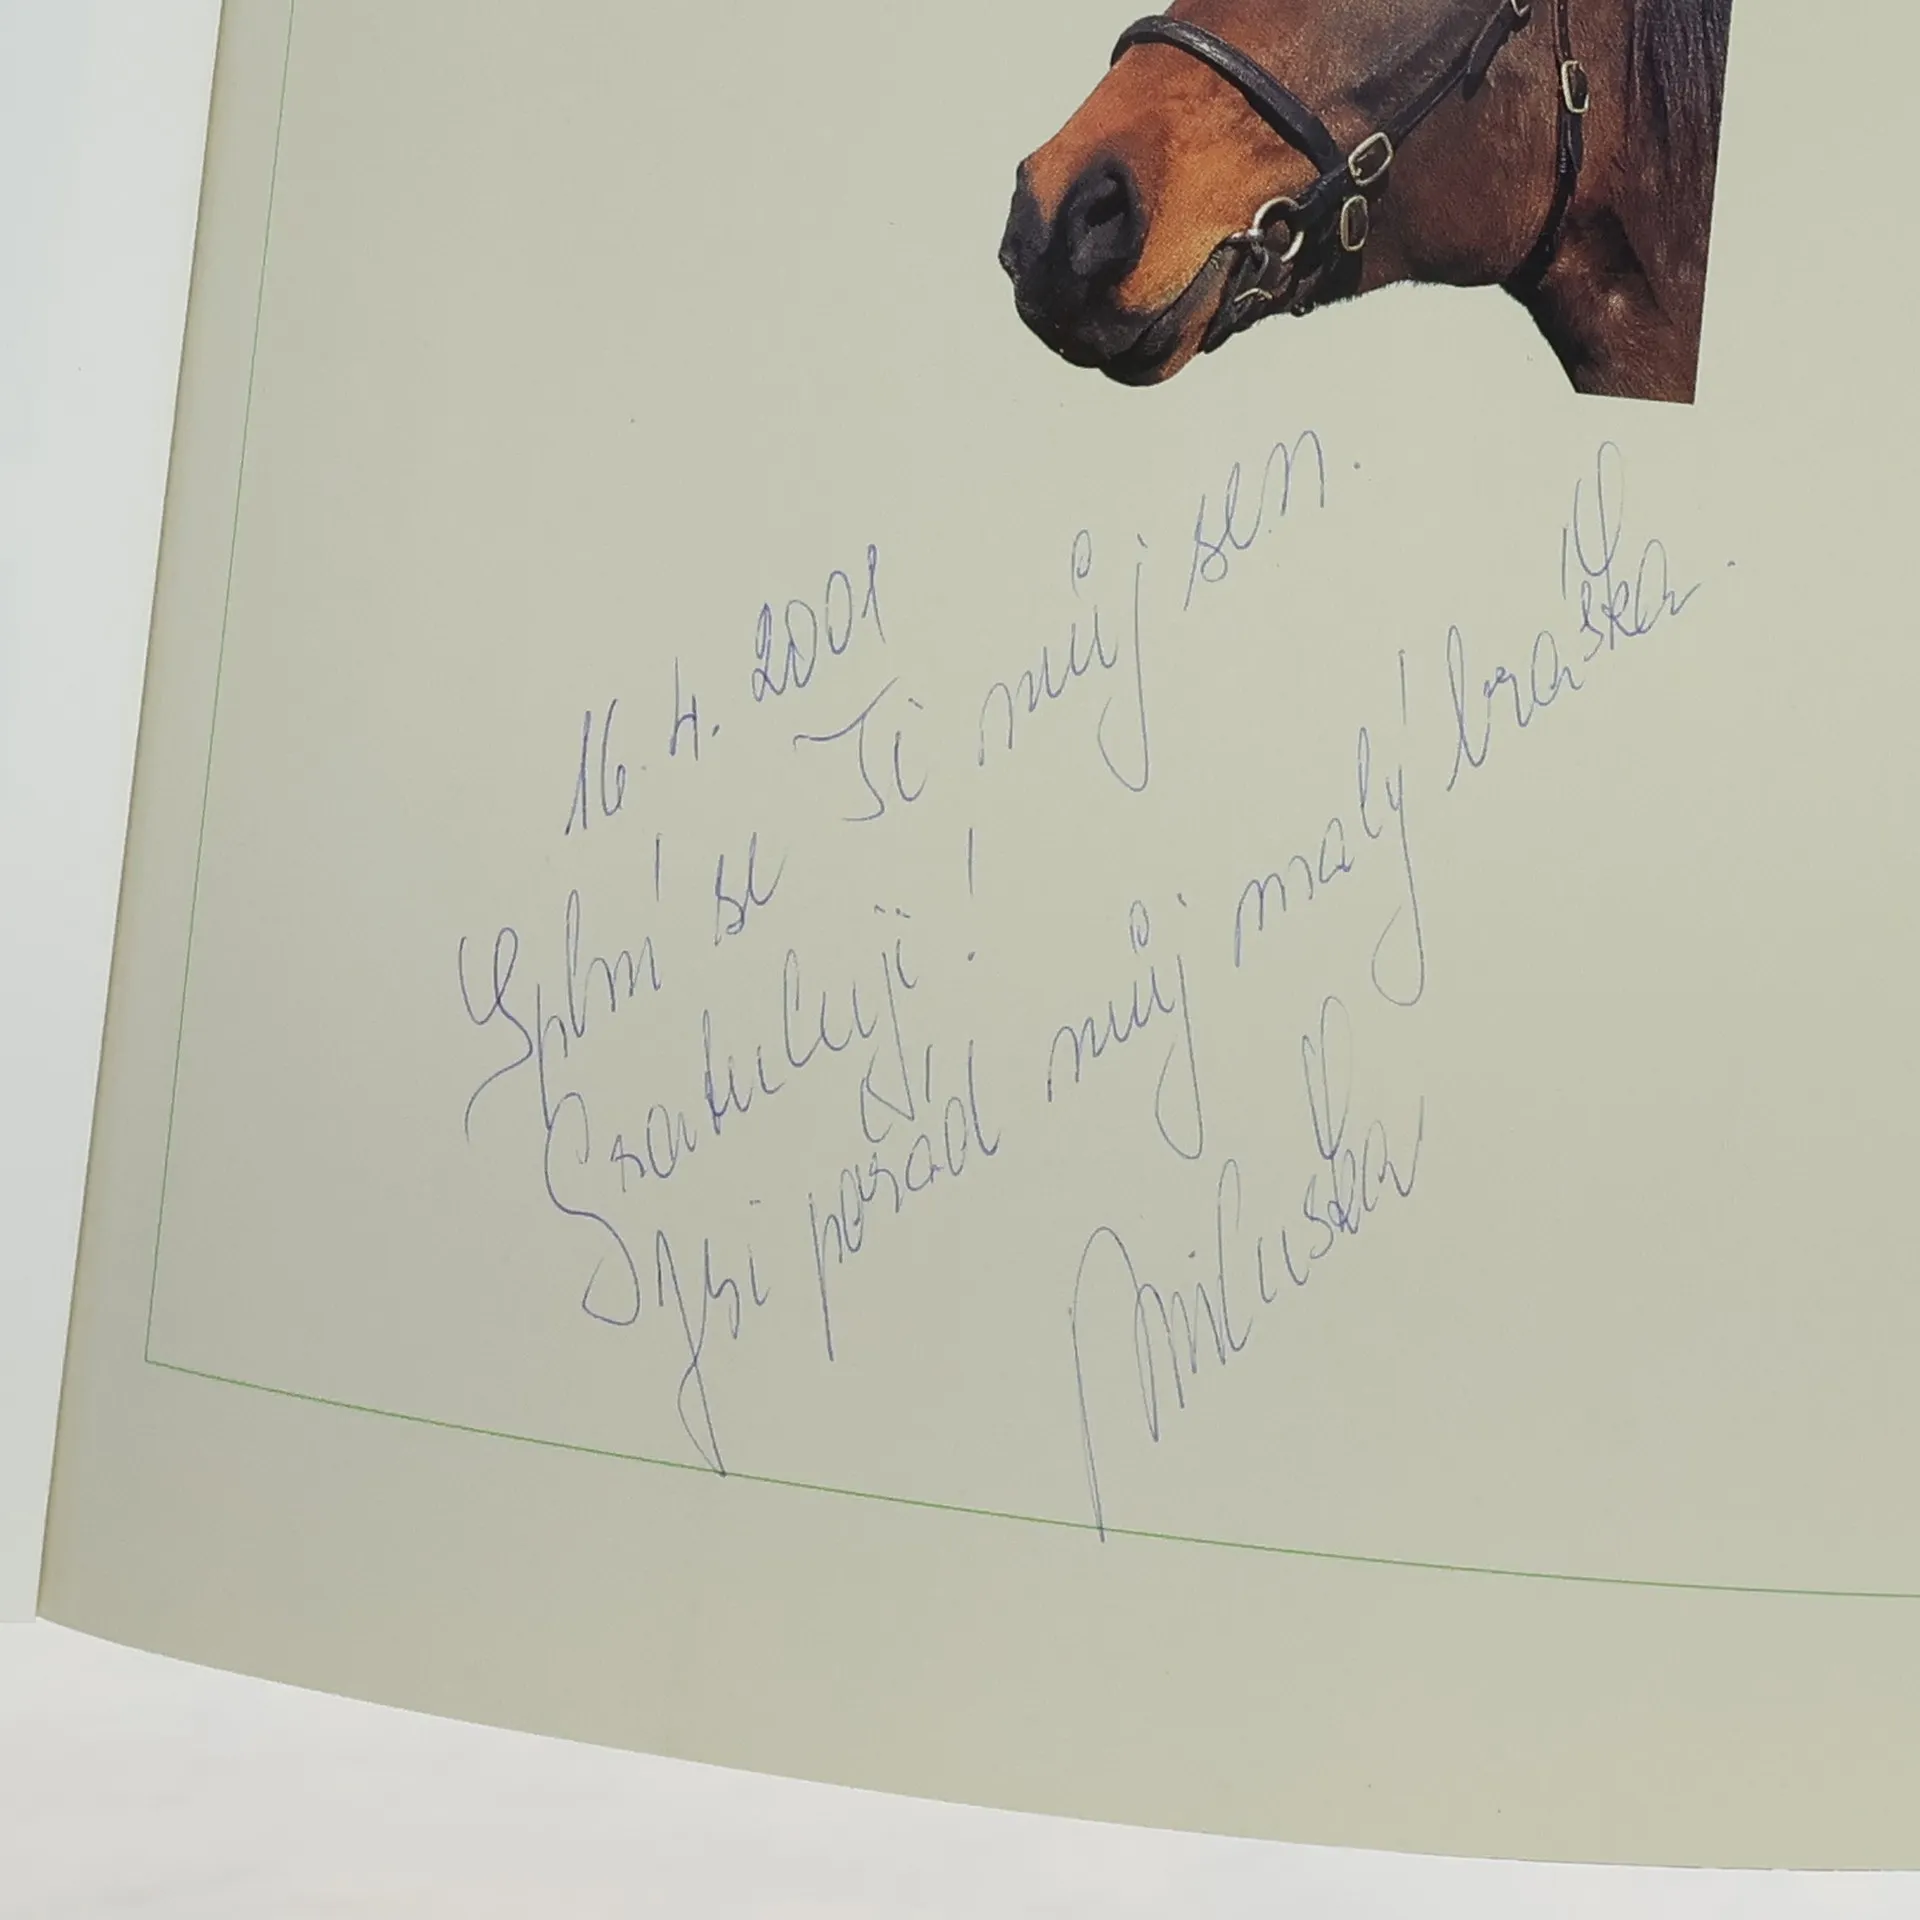 16. 4. 2001
Splní se Ti můj sen.
Gratuluji!
Jsi pořád můj malý braška.
Miluška